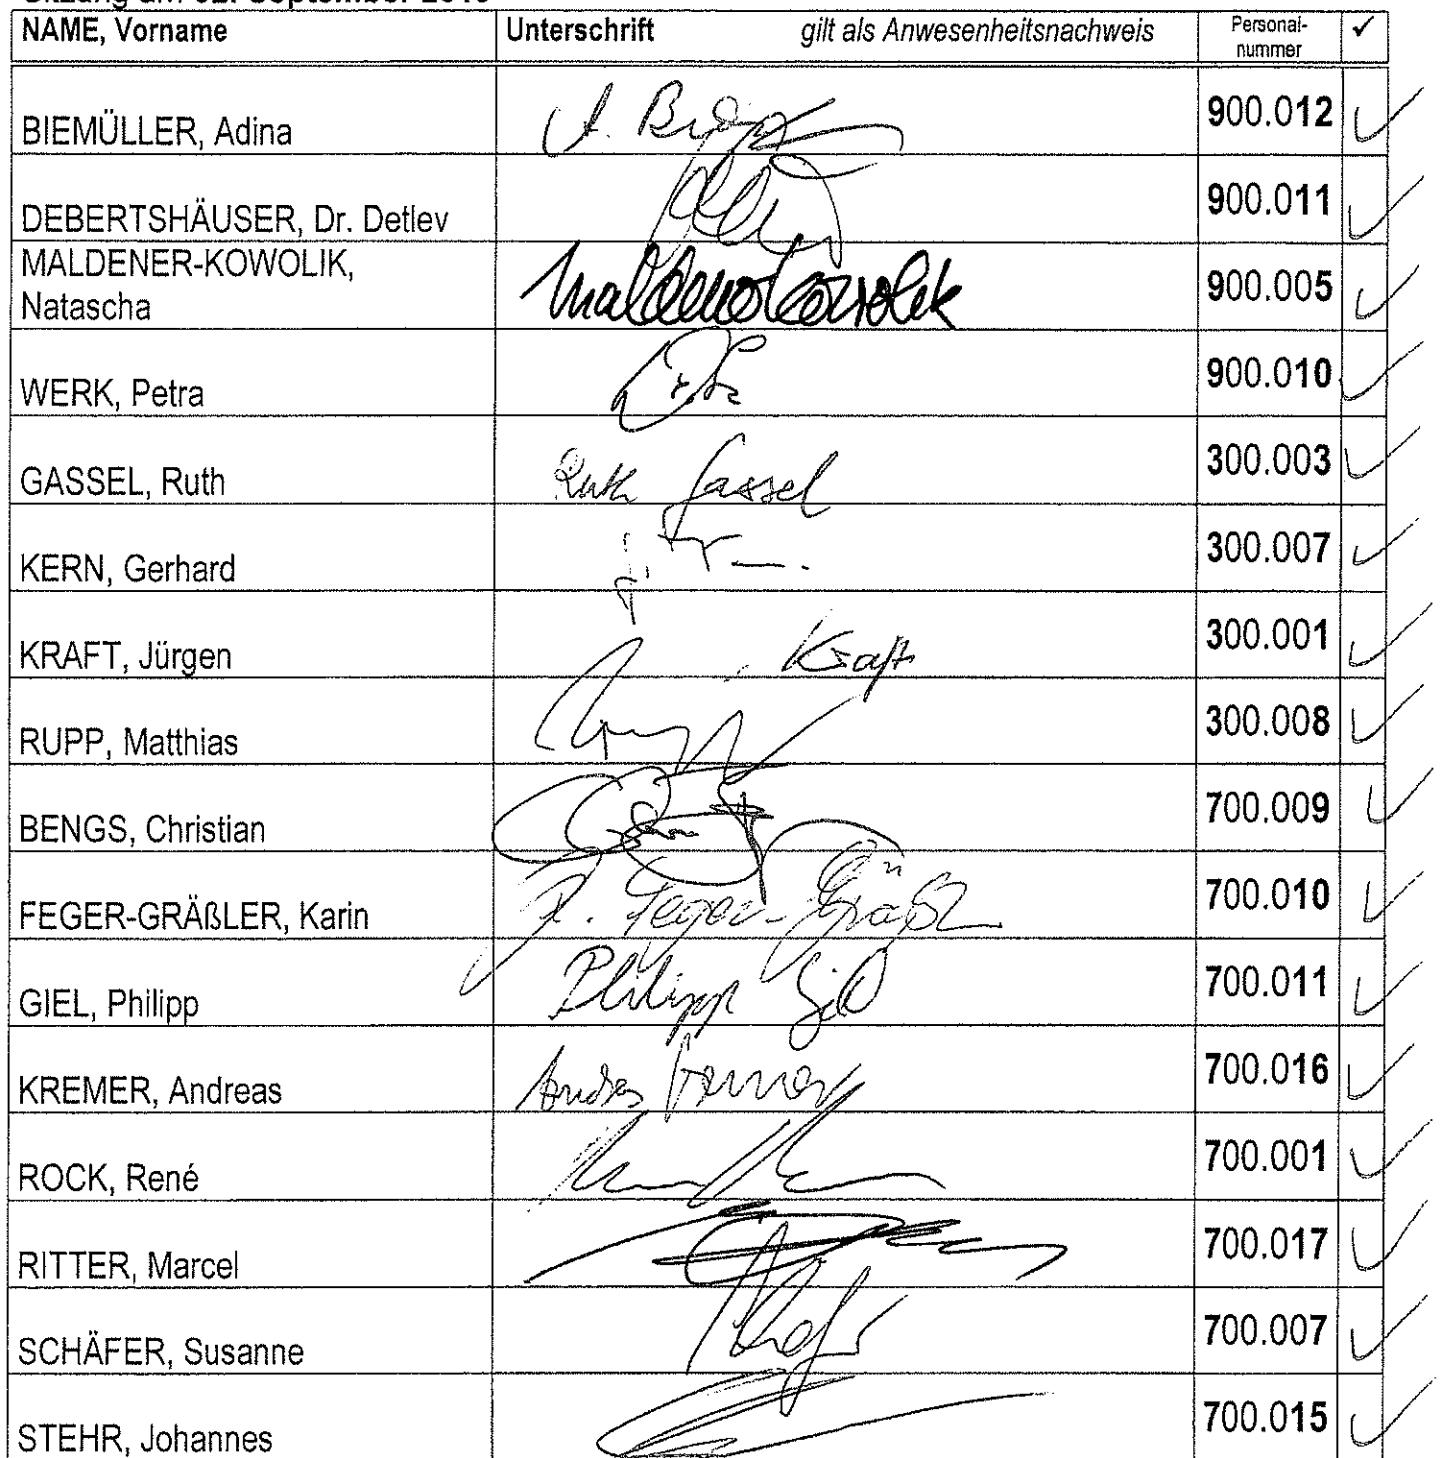 NAME, Vorname Unterschrift gilt als Anwesenheitsnachweis Personal- ✓
nummer
BIEMÜLLER, Adina A. 900.012 ✓
DEBERTSHÄUSER, Dr. Detlev 900.011 ✓
MALDENER-KOWOLIK,
Natascha Maldener Kowolik 900.005 ✓
WERK, Petra 900.010 ✓
GASSEL, Ruth Ruth Gassel 300.003 ✓
KERN, Gerhard 300.007 ✓
KRAFT, Jürgen Kraft 300.001 ✓
RUPP, Matthias 300.008 ✓
BENGS, Christian 700.009 ✓
FEGER-GRÄßLER, Karin K. Feger-Gräßl 700.010 ✓
GIEL, Philipp Philipp Giel 700.011 ✓
KREMER, Andreas Andreas Kremer 700.016 ✓
ROCK, René 700.001 ✓
RITTER, Marcel 700.017 ✓
SCHÄFER, Susanne 700.007 ✓
STEHR, Johannes 700.015 ✓